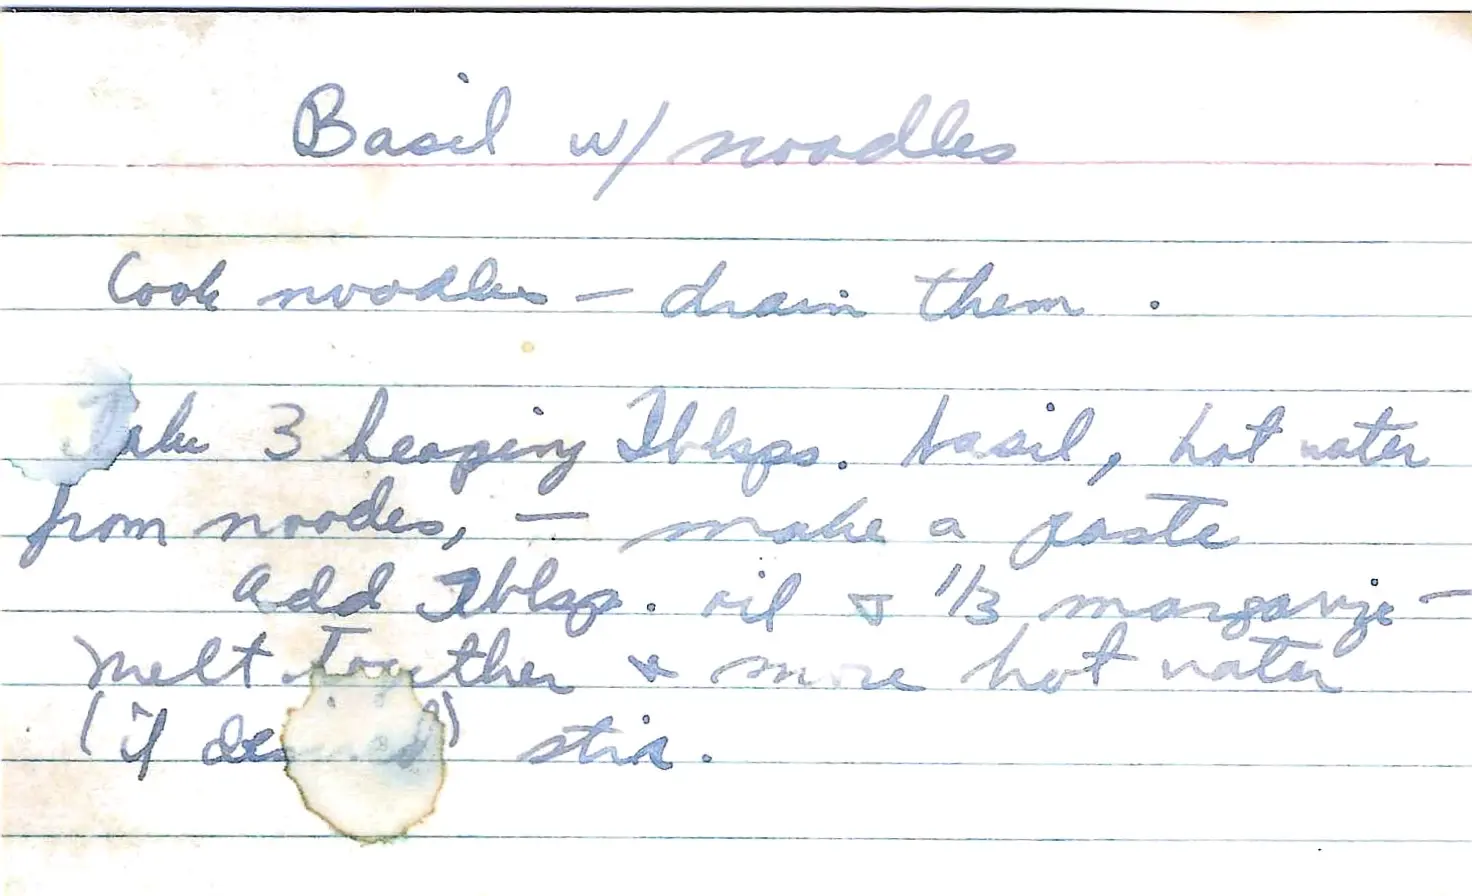 Basil w/ noodles
Cook noodles — drain them.
Take 3 heaping Tblsps. basil, hot water
from noodes, — make a paste
add Tblsp. oil & 1/3 margarine —
melt together & more hot water
(if desired) stir.